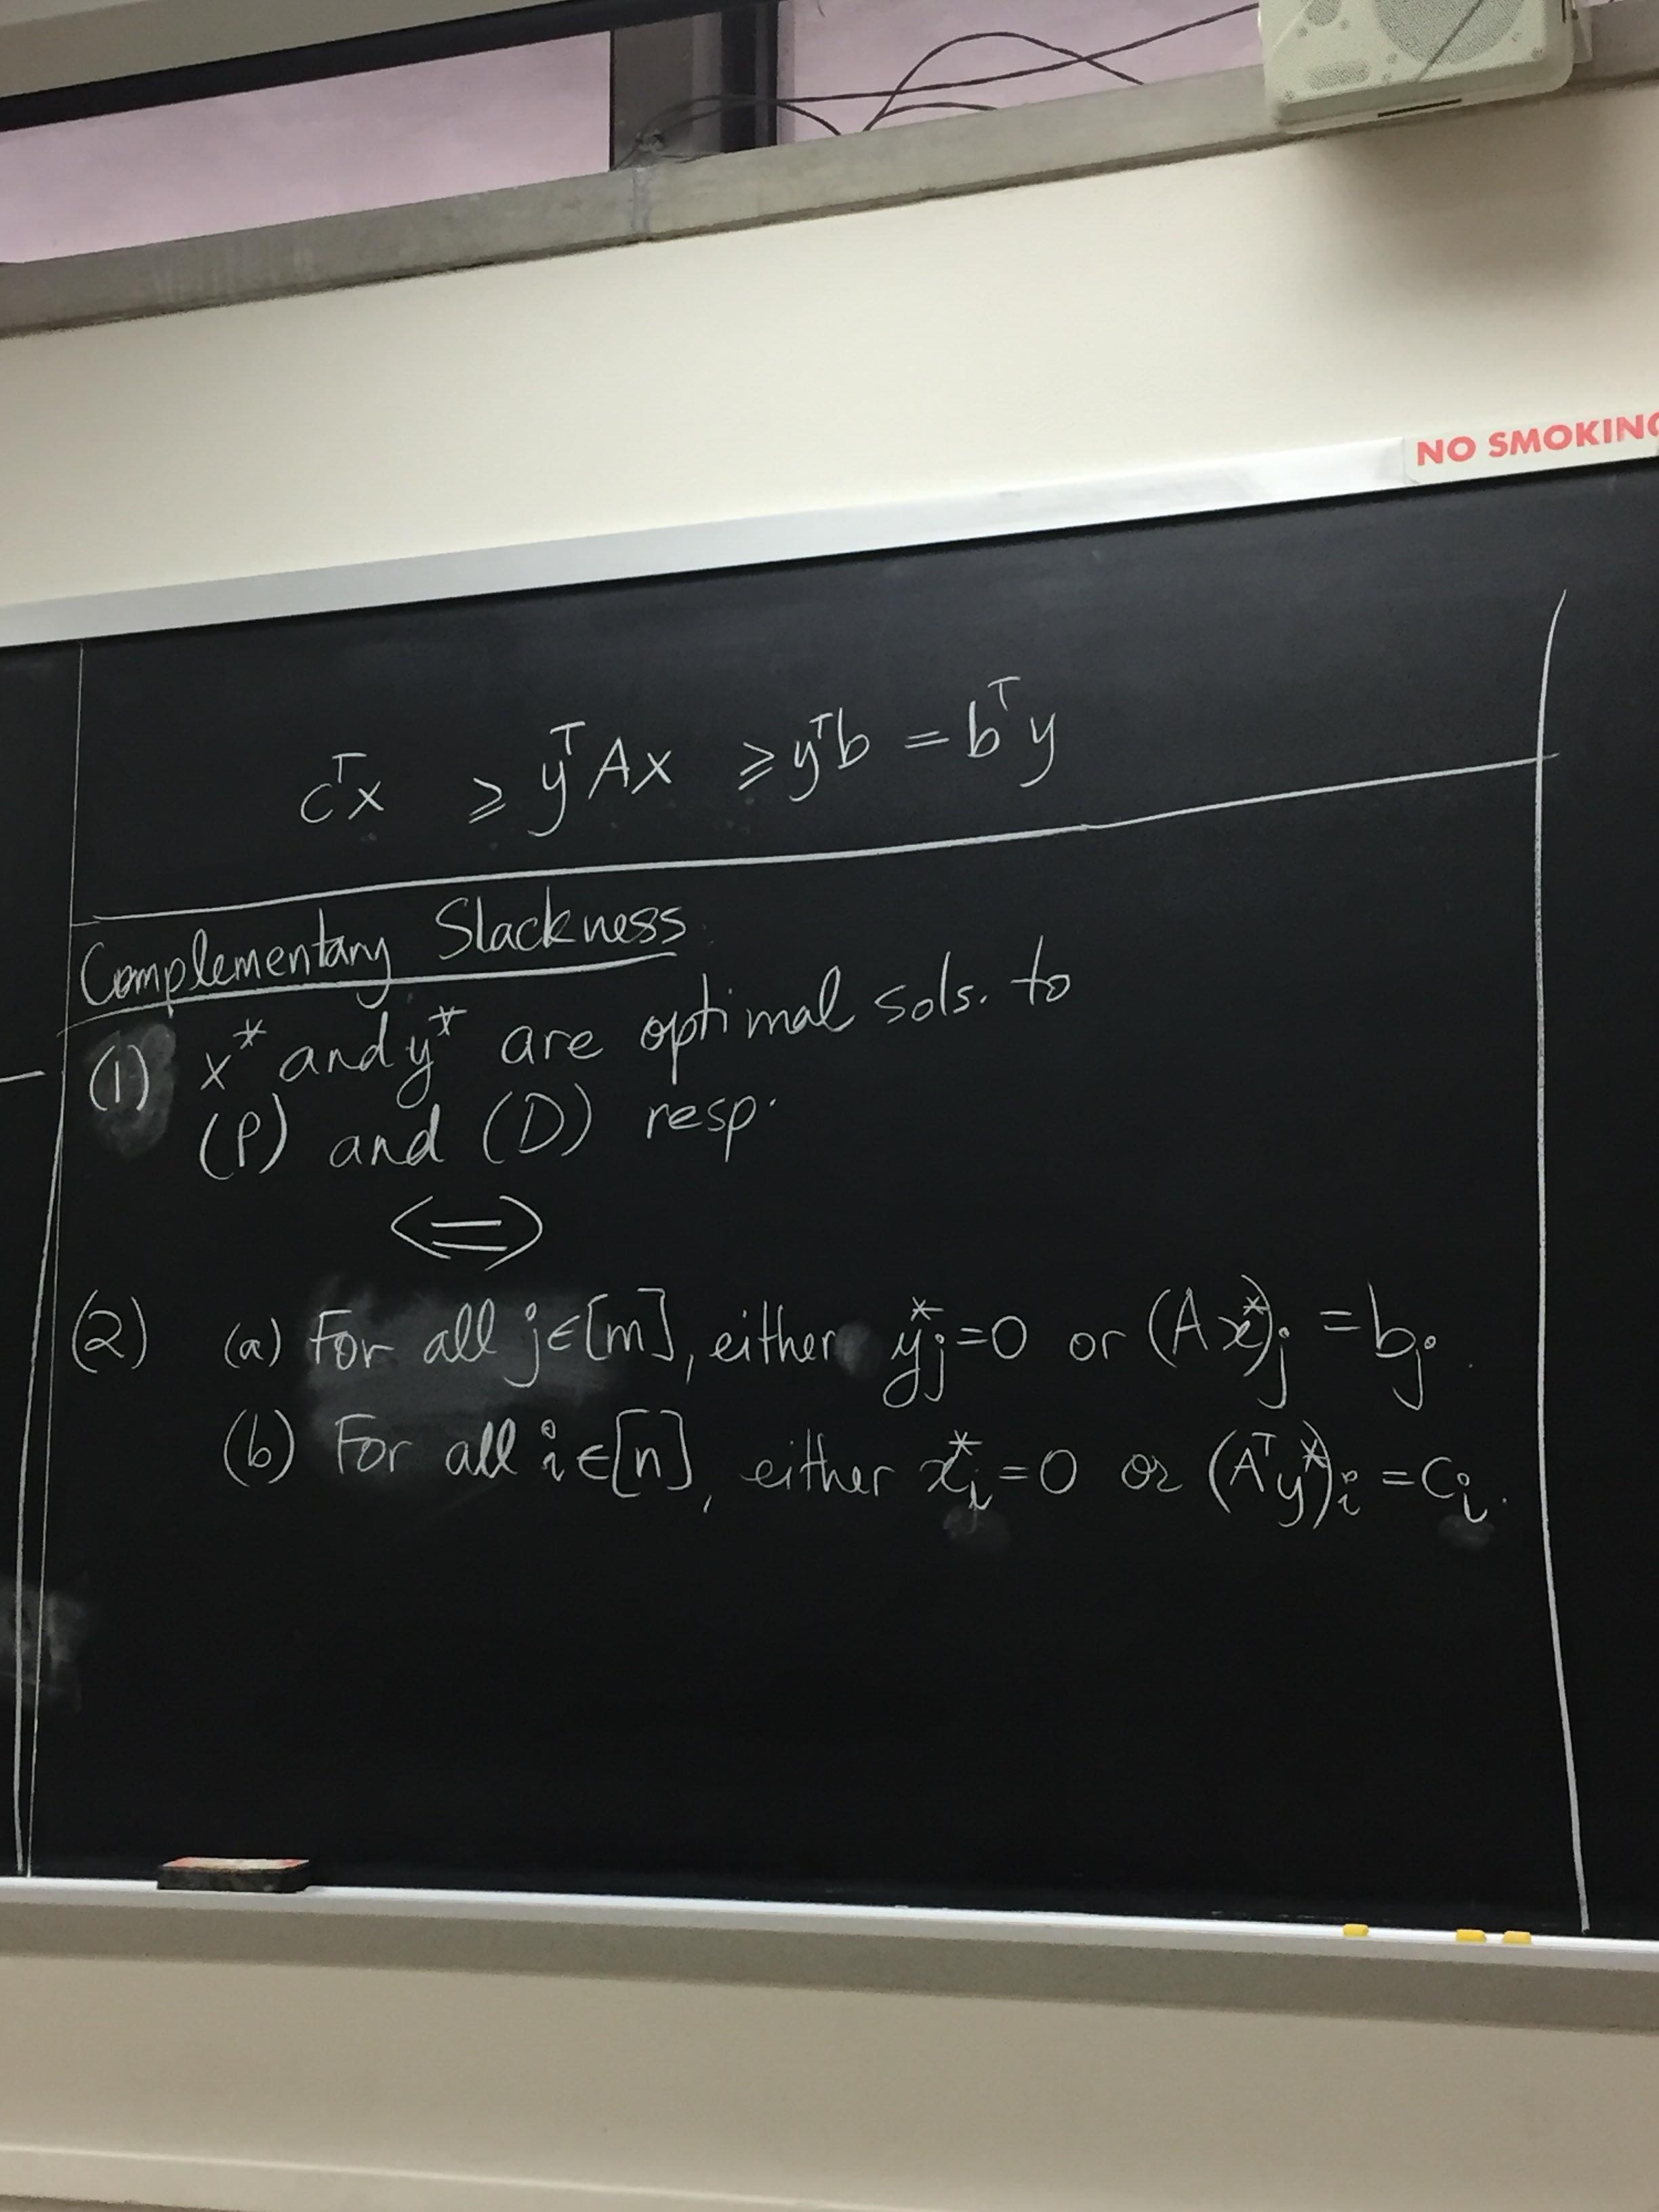 NO SMOKING
cᵀx ≥ yᵀAx ≥ yᵀb = bᵀy
Complementary Slackness
(1) x* and y* are optimal sols. to
(P) and (D) resp.
⟺
(2) (a) For all j∈[m], either y*ⱼ=0 or (Ax*)ⱼ = bⱼ.
(b) For all i∈[n], either x*ᵢ=0 or (Aᵀy*)ᵢ = cᵢ.